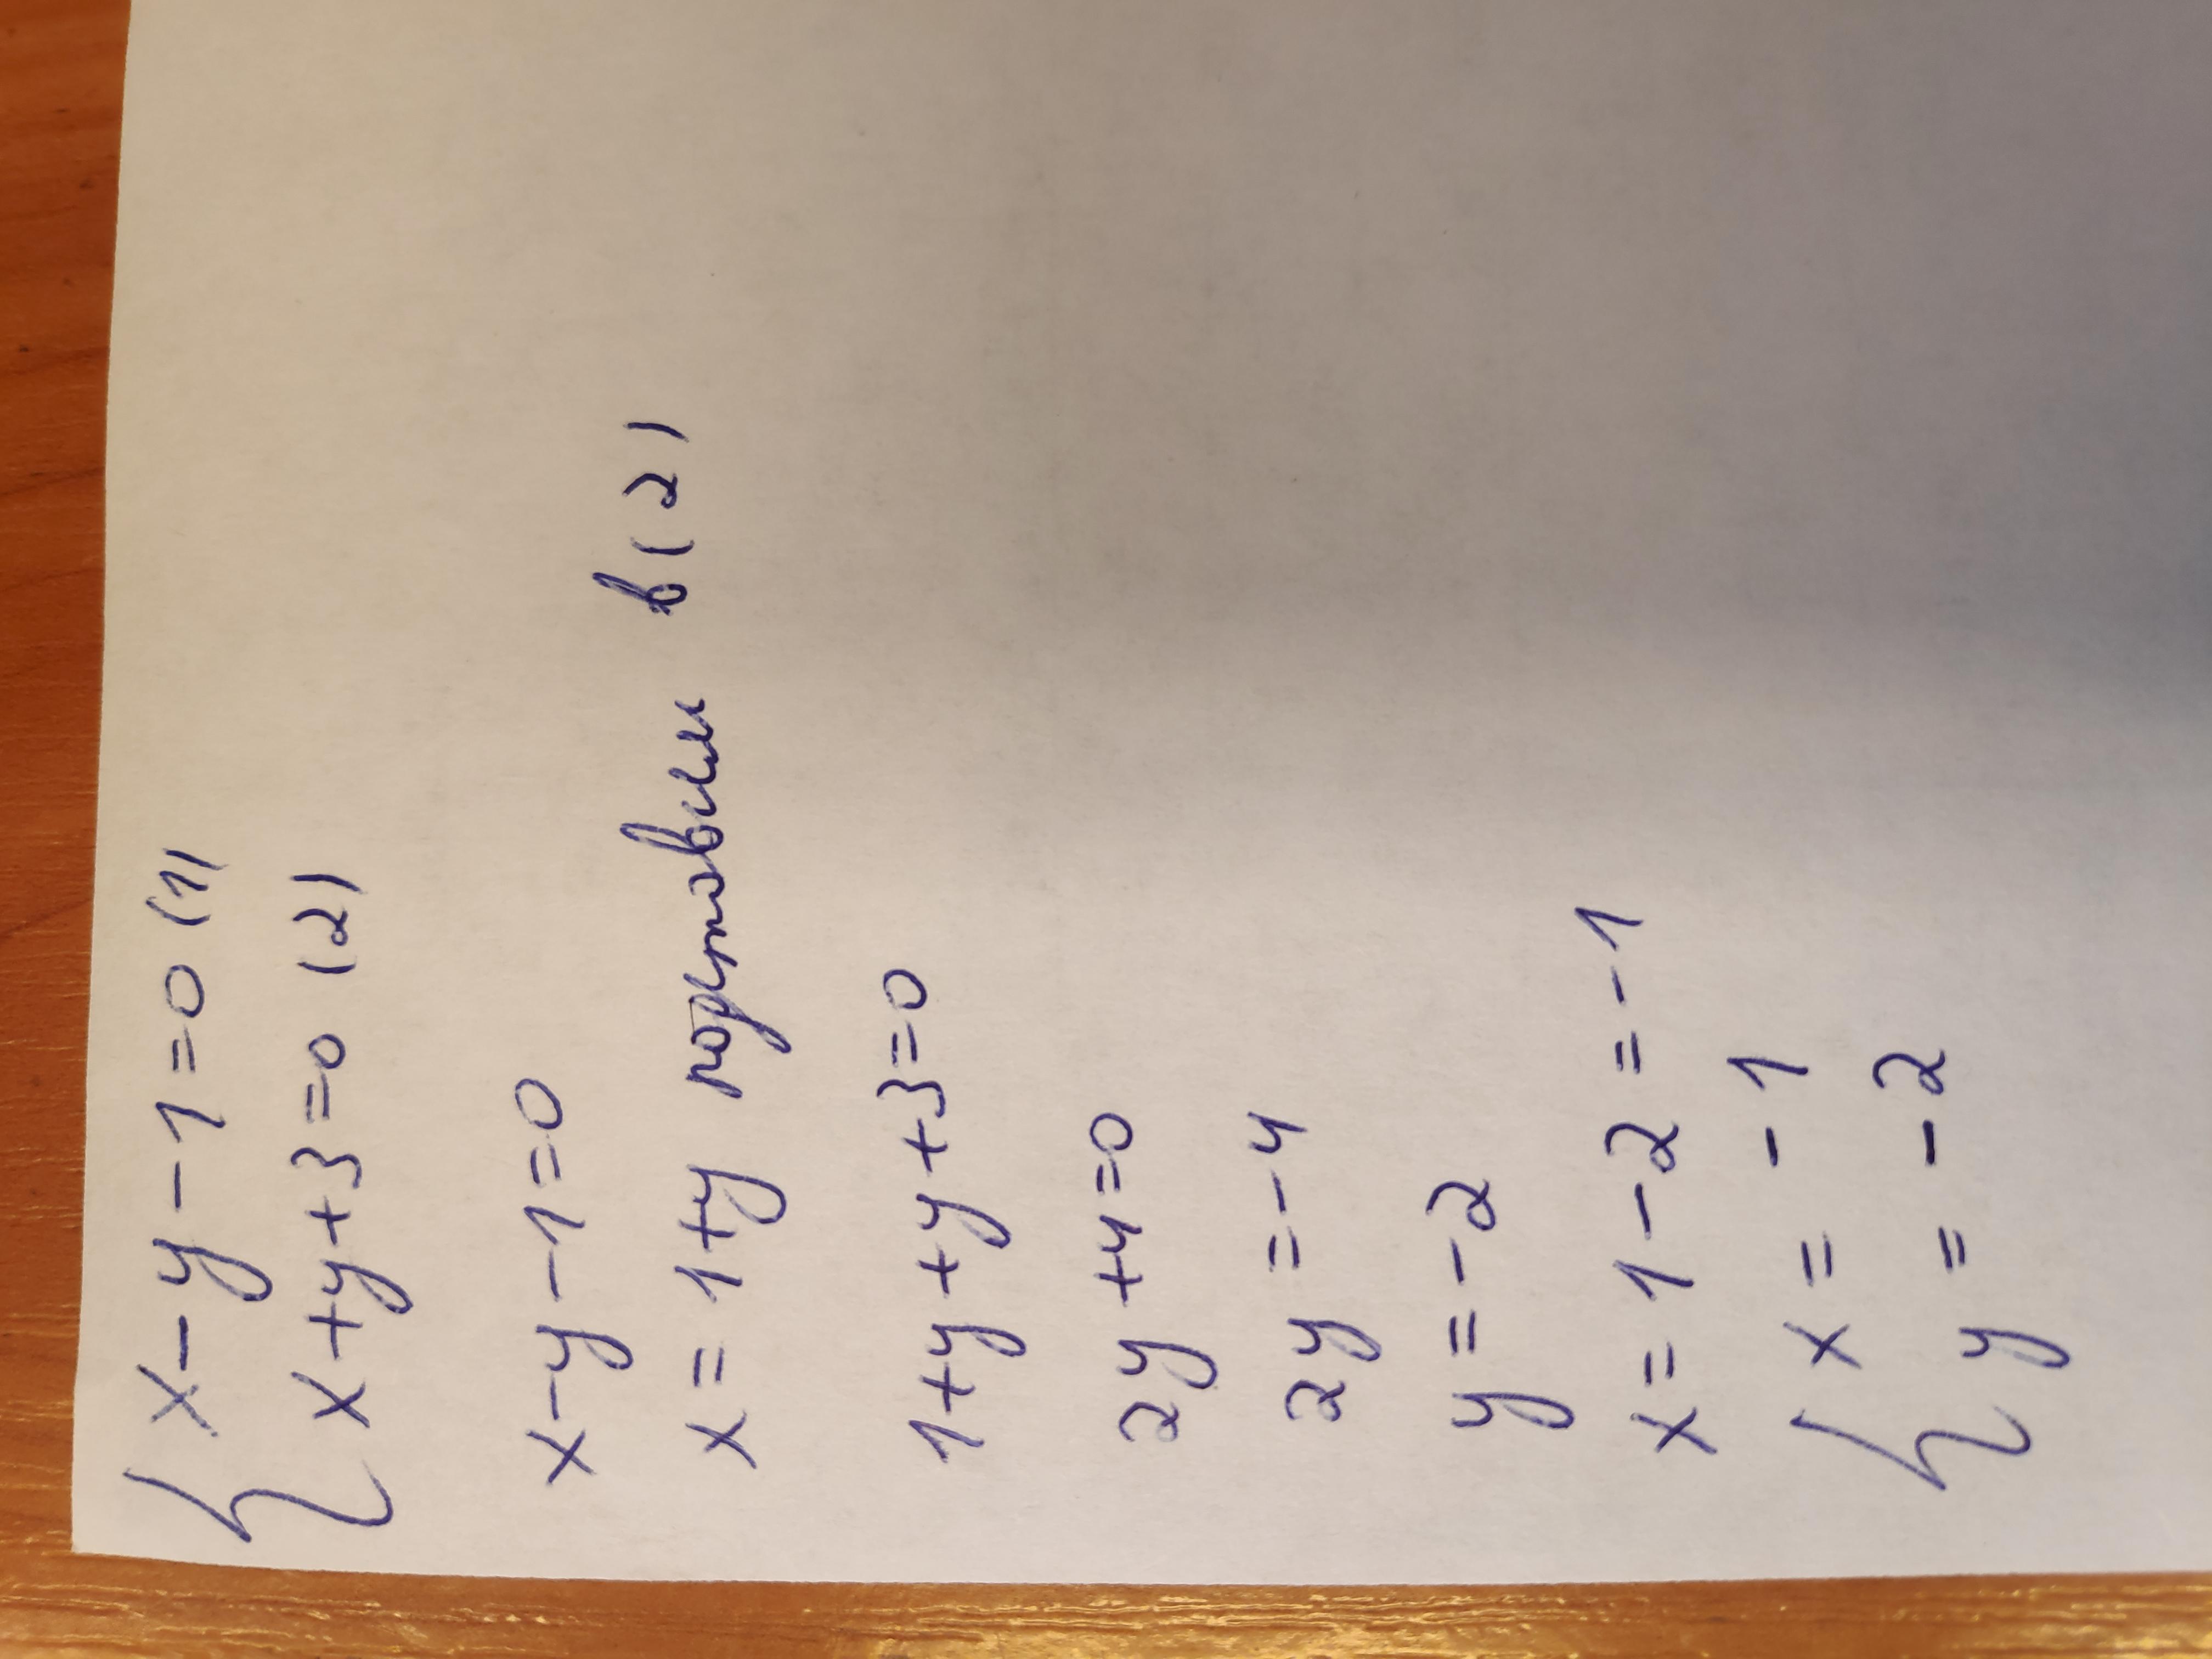 { x-y-1=0 (1)
x+y+3=0 (2)
x-y-1=0
x=1+y подставим в (2)
1+y+y+3=0
2y+4=0
2y=-4
y=-2
x=1-2=-1
{ x=-1
y=-2